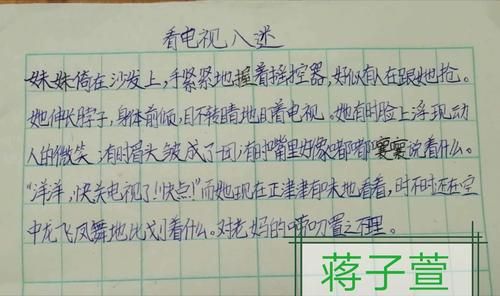 看电视入迷
妹妹倚在沙发上，手紧紧地握着摇控器，好似有人在跟她抢。
她伸长脖子，身体前倾，目不转睛地盯着电视。她有时脸上浮现动
人的微笑；有时眉头皱成了一团；有时嘴里好像嘟嘟囔囔说着什么。
“洋洋，快关电视了！快点！”而她现在正津津有味地看着，时不时还在空
中龙飞凤舞地比划着什么。对老妈的唠叨置之不理。
蒋子萱